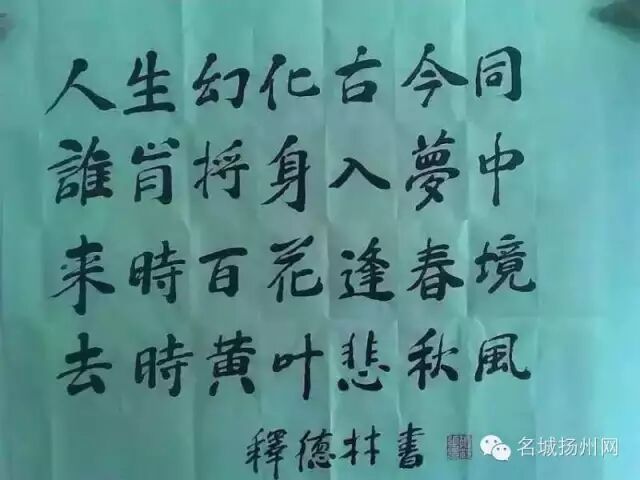 人生幻化古今同
誰肯将身入夢中
来時百花逢春境
去時黄叶悲秋風
釋德林書
名城扬州网